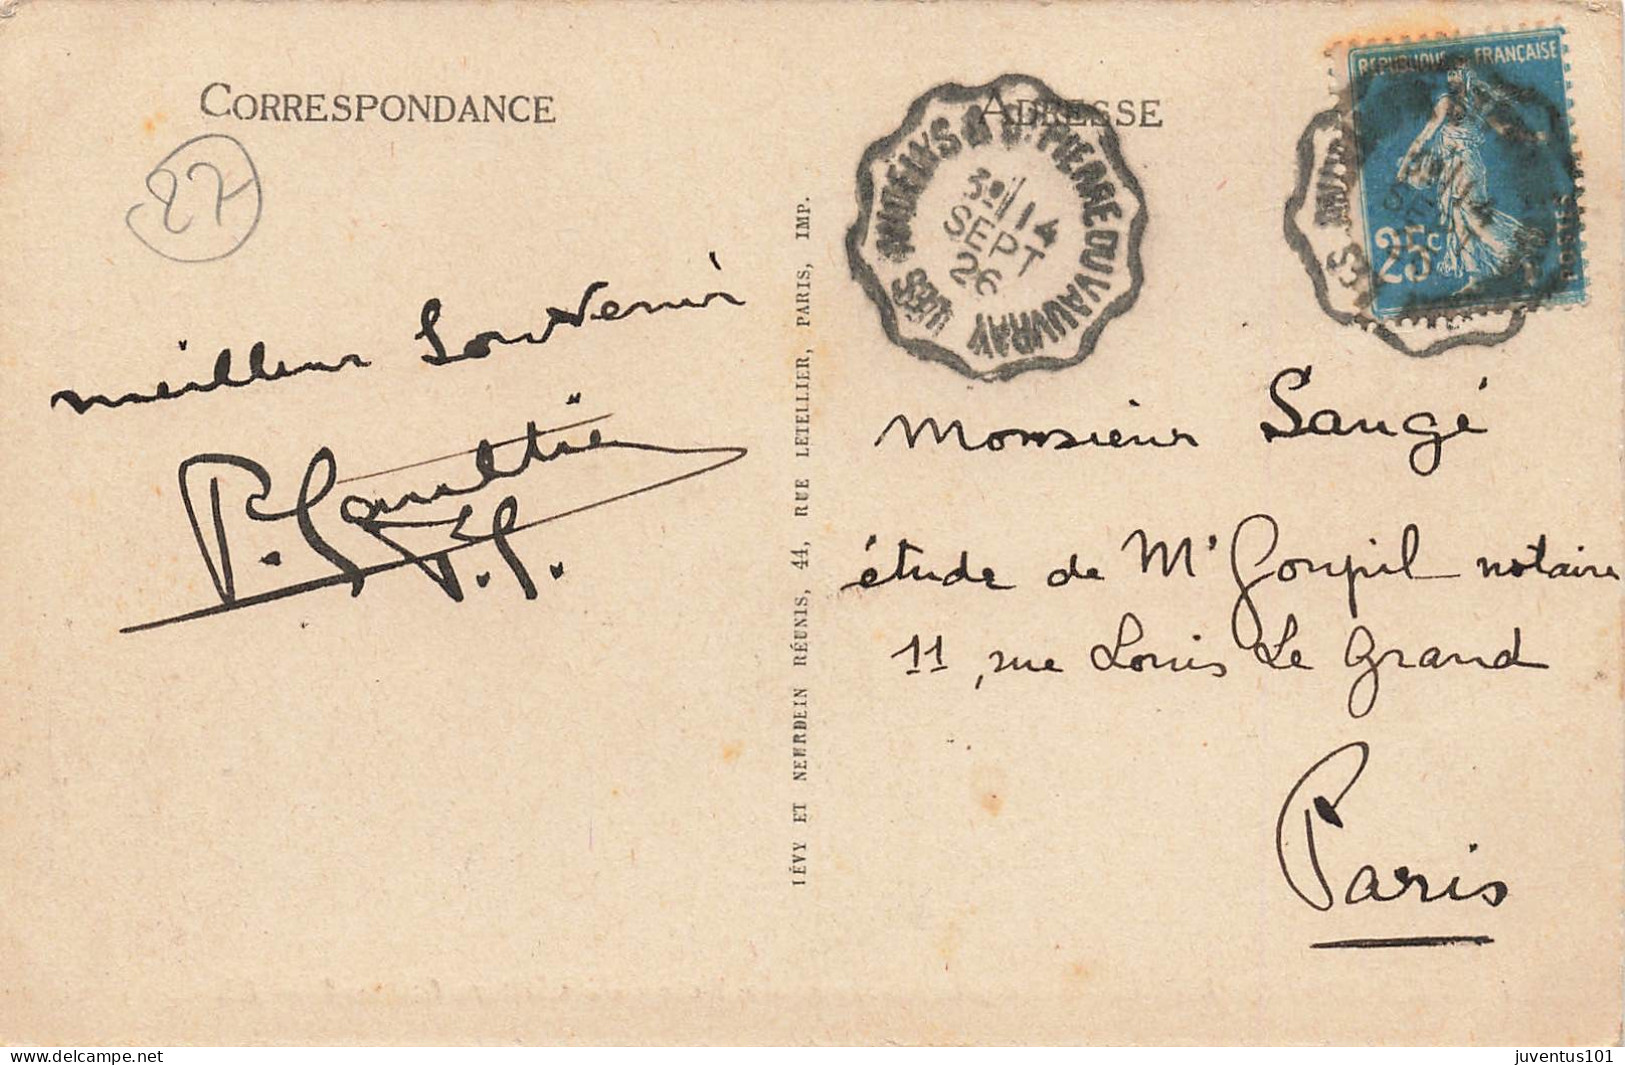 CORRESPONDANCE
ADRESSE
27
LES ANDELYS A ST PIERRE DU VAUVRAY
14
SEPT
26
REPUBLIQUE FRANÇAISE
25c
POSTES
meilleur Souvenir
P. Gaultier
Monsieur Saugé
étude de Me Goupil notaire
11, rue Louis Le Grand
Paris
LÉVY ET NEURDEIN RÉUNIS, 44, RUE LETELLIER, PARIS, IMP.
juventus101